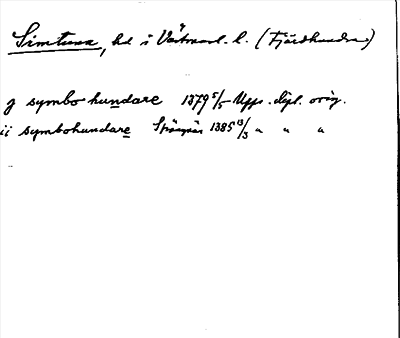 Simtuna, hd i Västmanl. l. (Fjärdhundra)
j symbohundare 1379 5/5 Upps. dipl. orig.
ii symbohundare Strängnäs 1385 13/3 " " "